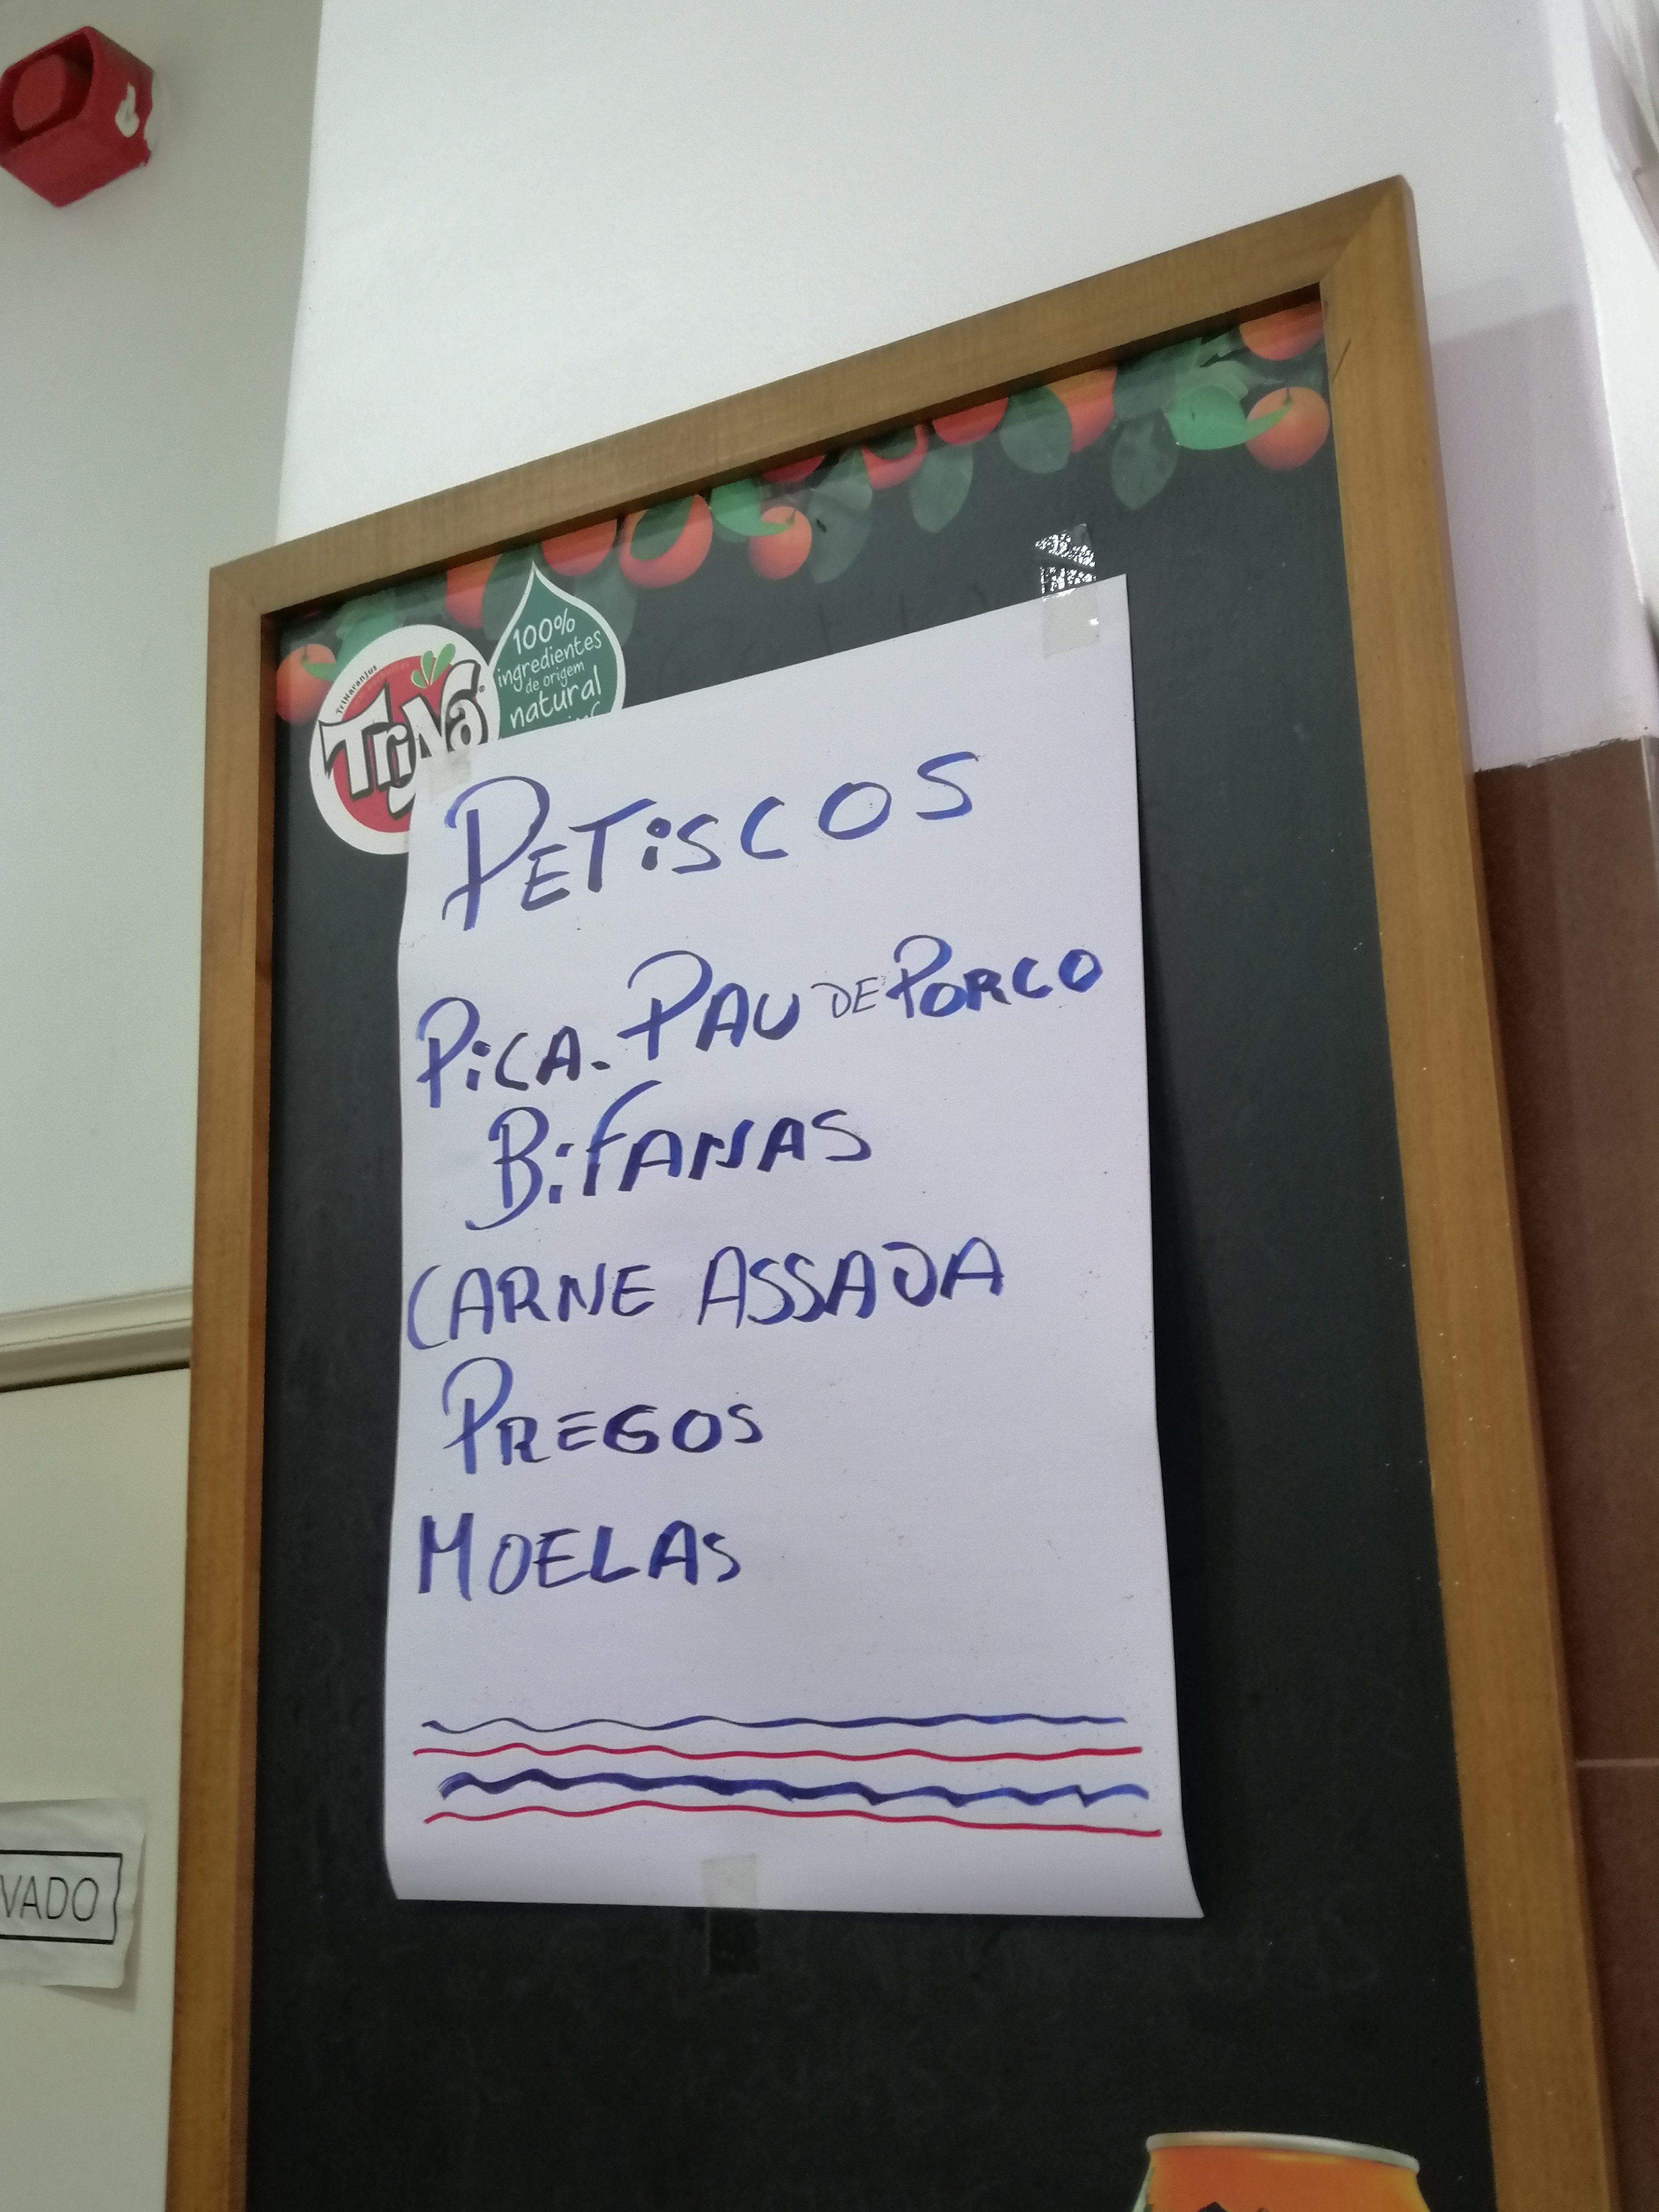 TriNaranjus
TriNa
100%
ingredientes
de origem
natural
PETiSCOS
PiCA-PAU DE PORCO
BiFANAS
CARNE ASSADA
PREGOS
MOELAS
VADO